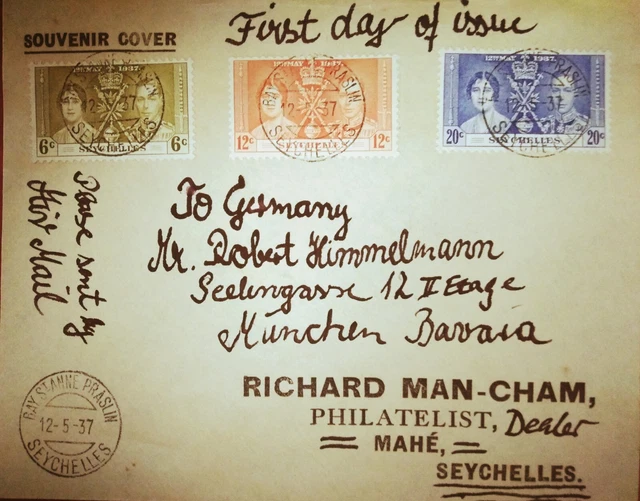 First day of issue
SOUVENIR COVER
12TH MAY 1937.
6c SEYCHELLES 6c
12TH MAY 1937.
12c SEYCHELLES 12c
12TH MAY 1937.
20c SEYCHELLES 20c
BAY ST. ANNE PRASLIN
12-5-37
SEYCHELLES
Please sent by
Air Mail
To Germany
Mr. Robert Himmelmann
12 II Etage
München Bavaria
RICHARD MAN-CHAM,
PHILATELIST, Dealer
MAHÉ,
SEYCHELLES.
BAY ST. ANNE PRASLIN
12-5-37
SEYCHELLES